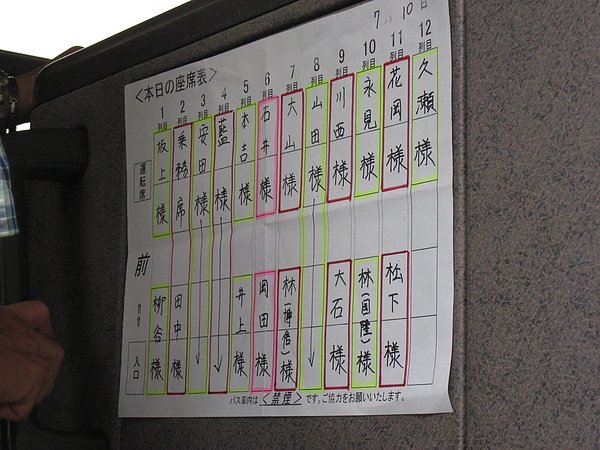 7 10日
＜本日の座席表＞
1列目 2列目 3列目 4列目 5列目 6列目 7列目 8列目 9列目 10列目 11列目 12列目
運転席
坂上様
乗務席
安田様
藍様
本吉様
石井様
大山様
山田様
川西様
永見様
花岡様
久瀬様
前
⇧⇧
入口
柳谷様
田中様
井上様
岡田様
林(博信)様
大石様
林(国隆)様
松下様
バス車内は＜禁煙＞です。ご協力をお願いいたします。